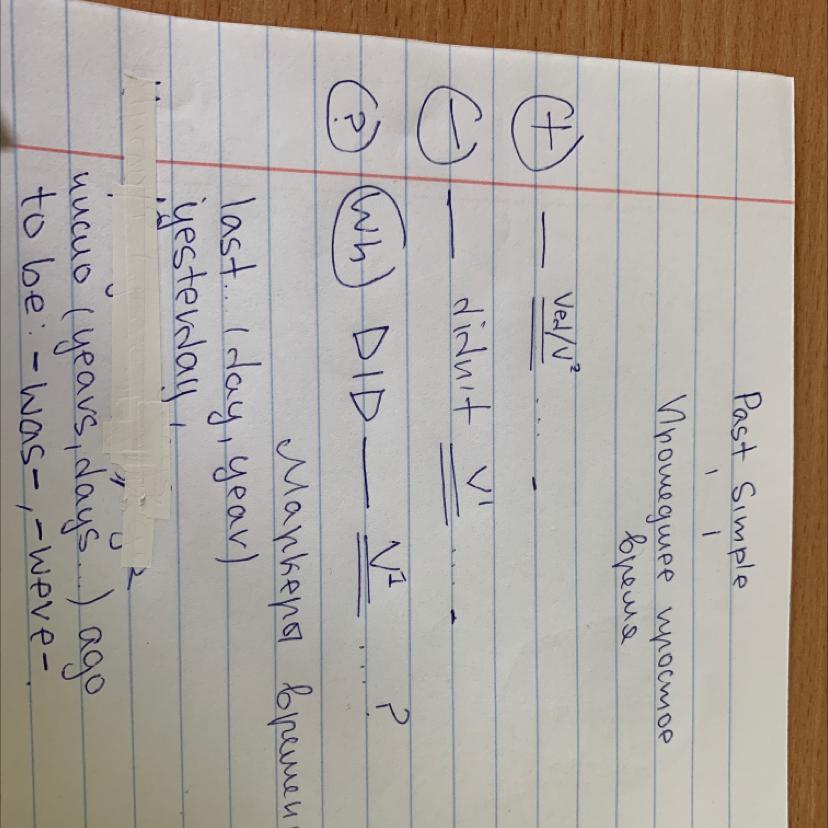 Past Simple
Прошедшее простое
время
+ — Ved/V² .... .
- — didn't V¹ .... .
? Wh DID — V¹ ....?
Маркеры времен
last... (day, year)
yesterday,
число (years, days...) ago
to be: -was-, -were-.